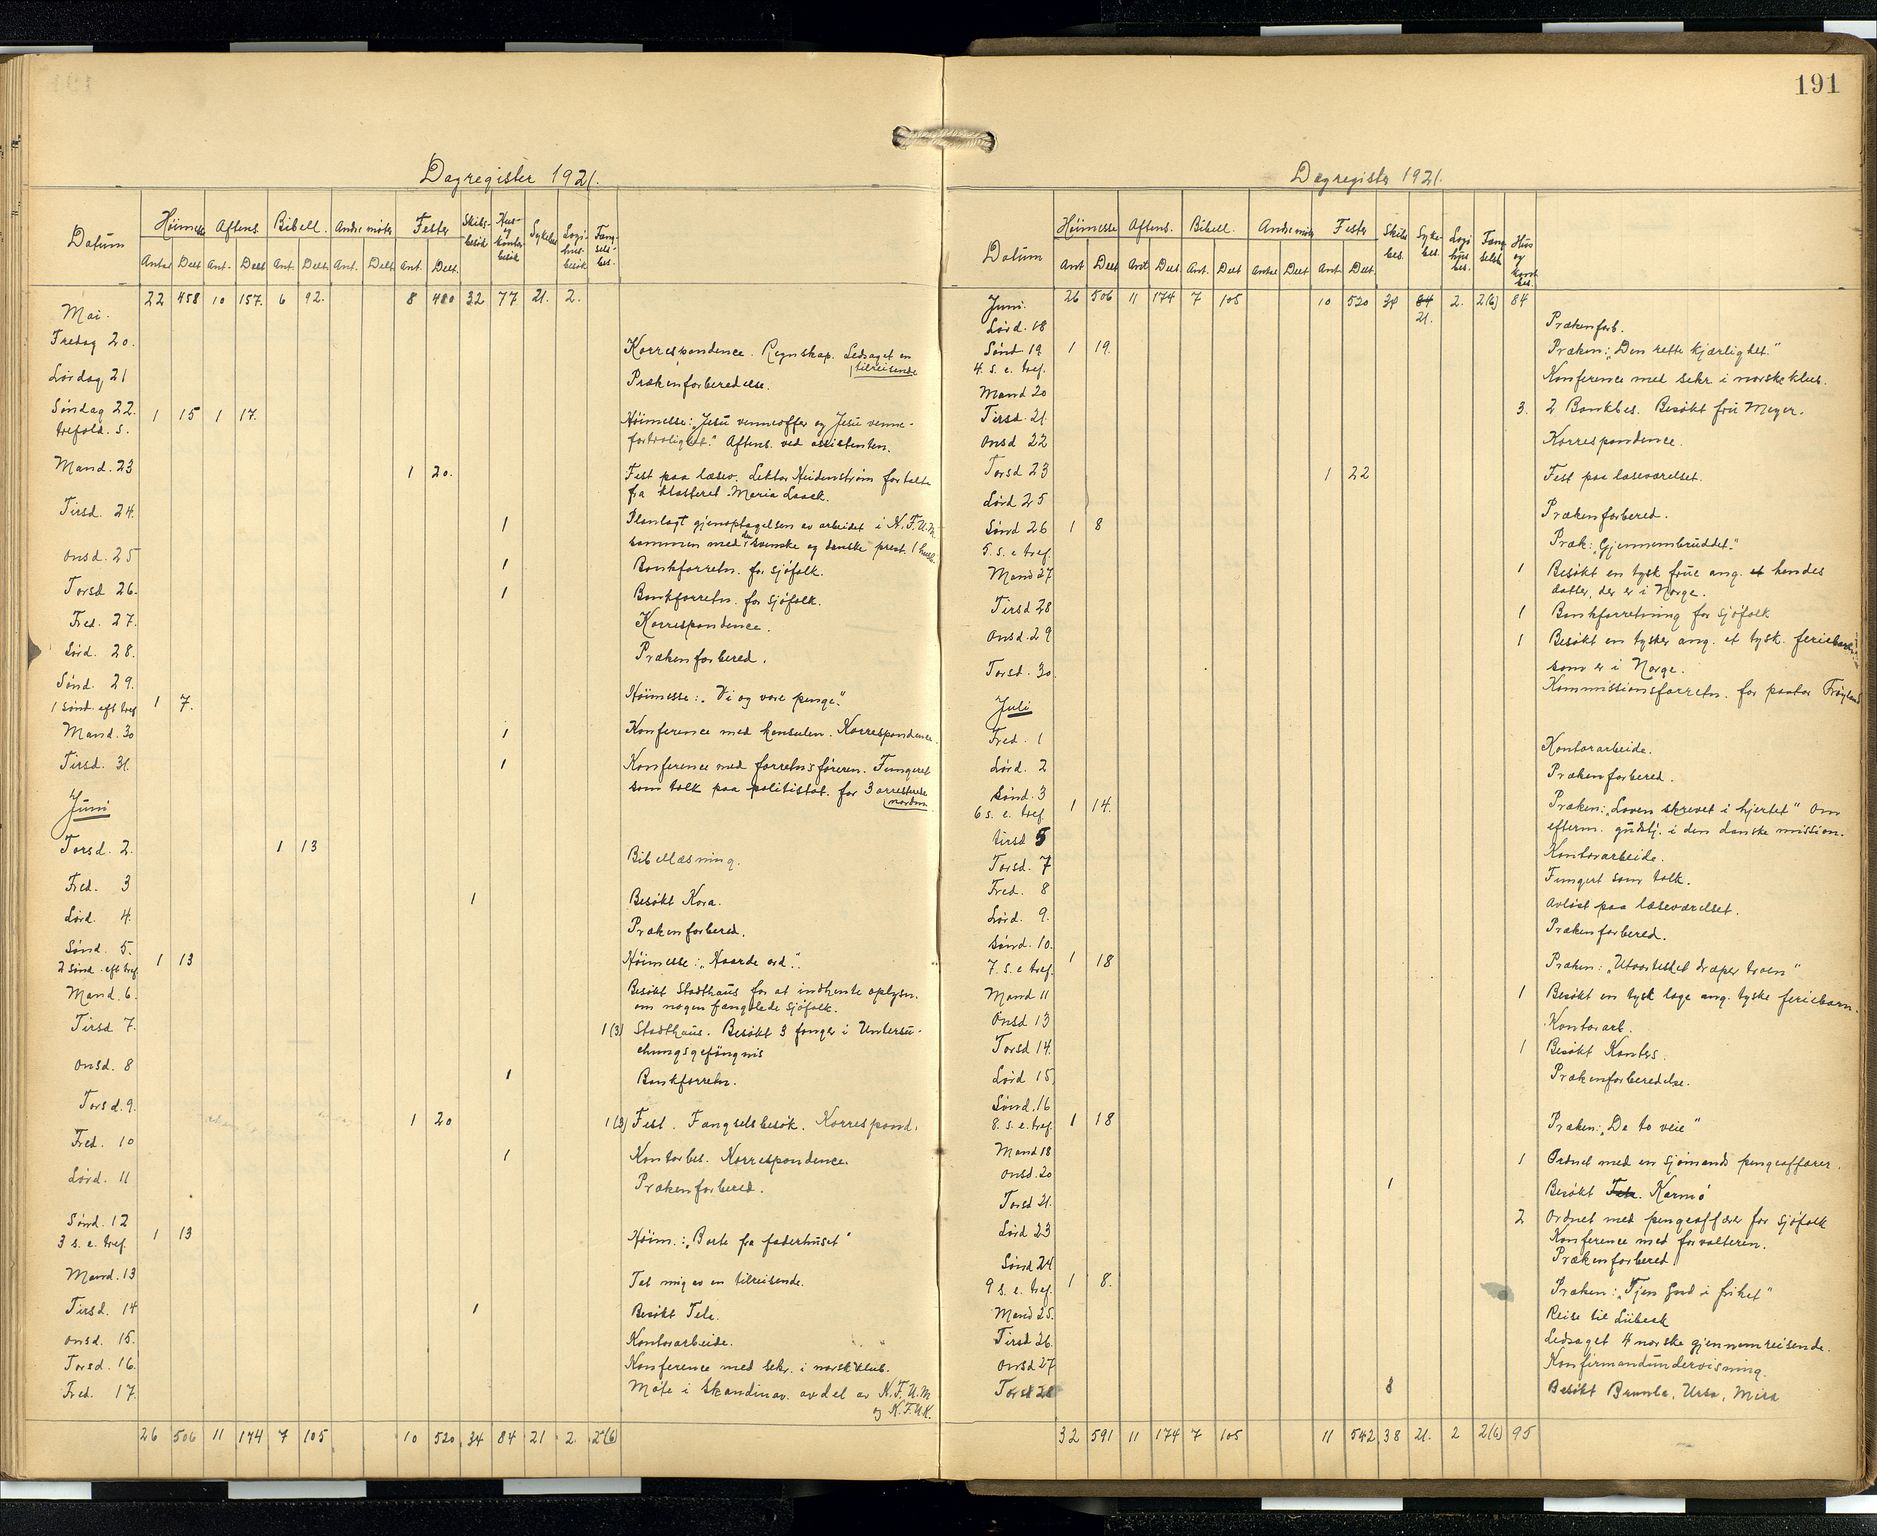 191
Dagregister 1921.
Datum Høimesse Aftens. Bibell. Andre møter Fester Skibsbesøk Hus- og kontorbesøk Sykebes Logihusbesøk Fængselsbes.
Antal Delt Ant. Delt Ant. Delt. Ant. Delt Ant. Delt.
Mai. 22 458 10 157. 6 92. 8 480 32 77 21. 2.
Fredag 20. Korrespondence. Regnskap. Ledsaget en tilreisende
Lørdag 21 Prækenforberedelse.
Søndag 22. 1 15 1 17. Høimesse: „Jesu venneoffer og Jesu venne-
trefold. s. fortrolighet." Aftens. ved assistenten.
Mand. 23 1 20. Fest paa læsev. Lektor Heidenstrøm fortalte
fra klosteret Maria Laach.
Tirsd. 24. 1 Planlagt gjenoptagelsen av arbeidet i N.F.U.M.
sammen med den svenske og danske prest.
Onsd. 25 1 Bankforretn. for sjøfolk.
Torsd 26. 1 Bankforretn. for sjøfolk.
Fred. 27. Korrespondence.
Lørd. 28. Prækenforbered.
Sønd. 29.
1 sønd. eft tref 1 7. Høimesse: „Vi og vore penge."
Mand. 30 1 Konference med konsulen. Korrespondence.
Tirsd. 31. 1 Konference med forretnsføreren. Fungeret
som tolk paa politistat. for 3 arresterede nordm.
Juni
Torsd. 2. 1 13 Bibellæsning.
Fred. 3 1 Besøkt Kora.
Lørd. 4. Prækenforbered.
Sønd. 5.
2 sønd. eft tref 1 13 Høimesse: „Haarde ord."
Mand. 6. Besøkt Stadthaus for at indhente oplysn.
om nogen fængslede sjøfolk.
Tirsd 7. 1(3) Stadthaus. Besøkt 3 fanger i Untersu-
chungsgefängnis
Onsd. 8 1 Bankforretn.
Torsd. 9. 1 20 1(3) Fest. Fængselsbesøk. Korrespond.
Fred. 10 1 Kontorbes. Korrespondence.
Lørd. 11 Prækenforbered.
Sønd. 12
3 s. e. tref. 1 13 Høim.: „Borte fra faderhuset"
Mand. 13 Tat mig av en tilreisende.
Tirsd. 14 1 Besøkt Tele.
Onsd. 15. Kontorarbeide.
Torsd. 16. Konference med sekr. i norsk klub.
Fred. 17. Møte i skandinav. avdel av N.F.U.M.
og N.F.U.K.
26 506 11 174 7 105 10 520 34 84 21 2. 2(6)
Dagregister 1921.
Datum Høimesse Aftens. Bibell. Andre møter Fester Skibsbes. Sykebes. Logihusbes. Fængselsb Hus og kont bes.
Ant Delt Ant Delt Ant. Delt Antal Delt Ant Delt.
Juni. 26 506 11 174 7 105 10 520 34 84 21. 2. 2(6) 84
Lørd. 18 Prækenforb.
Sønd. 19 1 19. Præken: „Den rette kjærlighet."
4. s. e. tref. Konference med sekr. i norske klub.
Mand 20 3. 2 Bankbes. Besøkt fru Meyer.
Tirsd. 21.
Onsd 22 Korrespondence.
Torsd 23 1 22 Fest paa læseværelset.
Lørd 25 Prækenforbered.
Sønd 26 1 8 Præk: „Gjennembruddet."
5. s. e tref.
Mand 27 1 Besøkt en tysk frue ang. et hendes
datter, der er i Norge.
Tirsd 28 1 Bankforretning for sjøfolk
Onsd. 29 1 Besøkt en tysker ang. et tysk. feriebarn
som er i Norge.
Torsd. 30 Kommissionsforretn. for pastor Frøyland
Juli
Fred. 1 Kontorarbeide.
Lørd. 2 Prækenforbered.
Sønd. 3 Præken: „Loven skrevet i hjertet" Om
6 s. e. tref 1 14. efterm. gudstj. i den danske mission.
tirsd 5 Kontorarbeide.
Torsd. 7 Fungert som tolk.
Fred. 8 Avløst paa læseværelset.
Lørd. 9. Prækenforbered.
Sønd. 10.
7. s. e tref. 1 18 Præken: „Utvortishet dræper troen"
Mand 11 1 Besøkt en tysk læge ang. tyske feriebarn.
Onsd 13 Kontorarb.
Torsd 14. 1 Besøkt Kontors.
Lørd 15 Prækenforberedelse.
Sønd. 16
8. s. e. tref 1 18 Præken: „De to veie"
Mand 18 1 Ordnet med en sjømands pengeaffærer.
Onsd. 20 1 Besøkt Tele. Karmö
Torsd 21. 2 Ordnet med pengeaffærer for sjøfolk
Lørd 23 Konference med forvalteren.
Prækenforbered
Sønd 24
9 s. e. tref. 1 8. Præken: „Tjen Gud i frihet"
Mand 25. Reise til Lübeck
Tirsd 26. Ledsaget 4 norske gjennemreisende.
Onsd 27 Konfirmandundervisning.
Torsd 28 8 Besøkt Bramla, Ursa, Mira
32 591 11 174 7 105 11 542 38 21. 2 2(6) 95